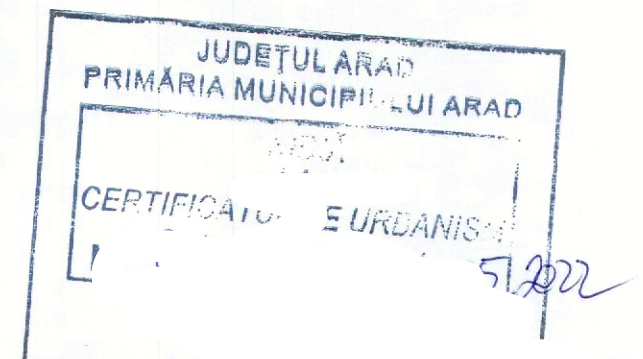 JUDEȚUL ARAD
PRIMĂRIA MUNICIPIULUI ARAD
CERTIFICATUL DE URBANISM
2022